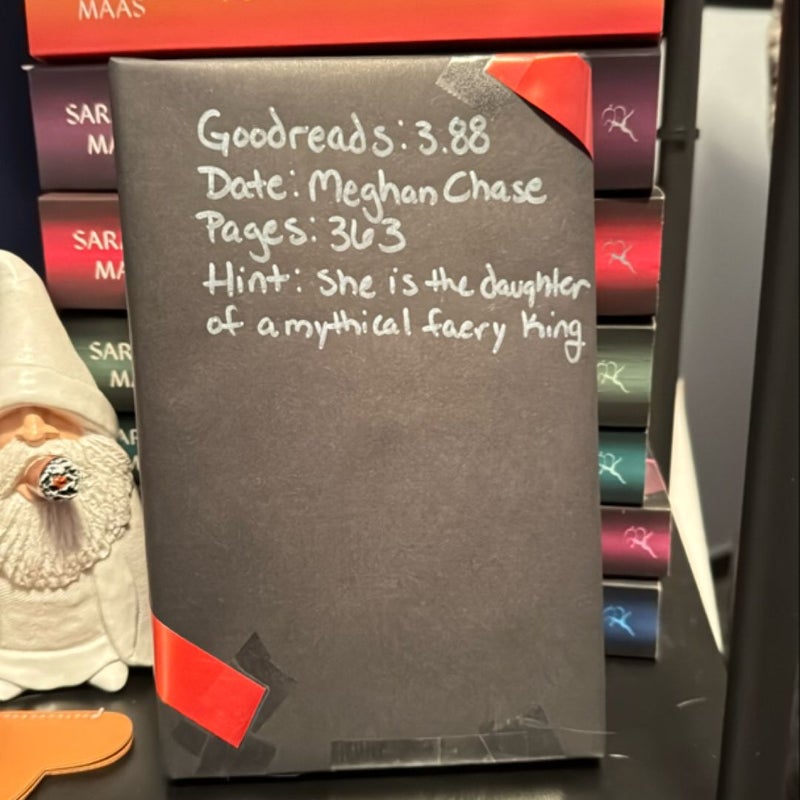 MAAS
Goodreads: 3.88
Date: Meghan Chase
Pages: 363
Hint: she is the daughter
of a mythical faery King
SAR
MA
SAR
MA
SAR
M
AR